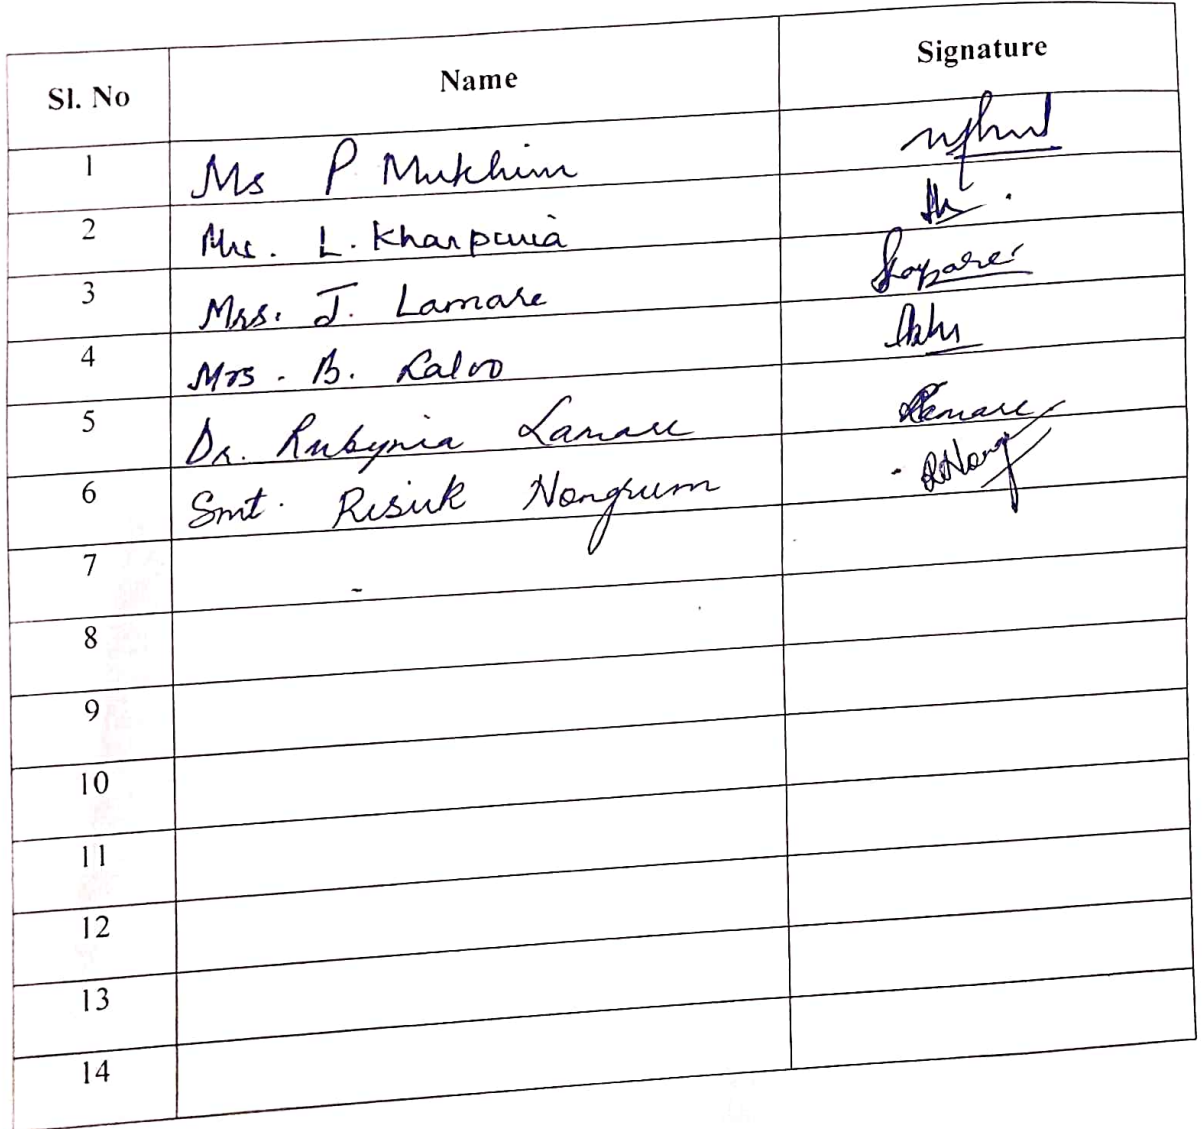 Sl. No Name Signature
1 Ms P Mukhim
2 Mrs. L. Kharpuria
3 Mrs. J. Lamare
4 Mrs. B. Laloo
5 Dr. Rubynia Lamare Lamare
6 Smt. Risuk Nongrum RNong
7
8
9
10
11
12
13
14